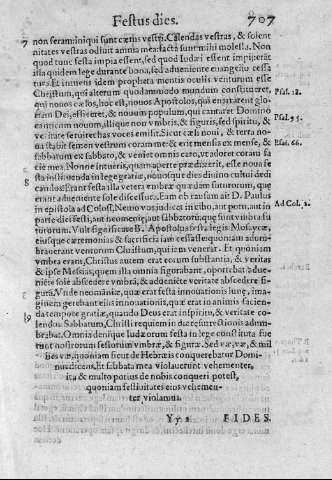 Festus dies. 707
7 non feram: iniqui sunt cætus vestri. Calendas vestras, & solen
nitates vestras odiuit anima mea: facta sunt mihi molesta. Non
quod tunc festa impia essent, sed quod Iudæi essent impij: erat
illa quidem lege durante bona, sed adueniente euangelio cessa
tura. Et inuens idem propheta mentis oculis venturum esse
Christum, qui alterum quodammodo mundum constitueret,
qui nouos cælos, hoc est, nouos Apostolos, qui enarrarent glo
riam Dei, efficeret, & nouum populum, qui cantaret Domino
canticum nouum, alijque non vmbris, & figuris, sed spiritu, &
veritate seruiret: has voces emisit. Sicut cæli noui, & terra no-
ua stabit semen vestrum coram me: & erit mensis ex mense, &
sabbatum ex sabbato, & veniet omnis caro, vt adoret coram fa
cie mea. Nonne intuêris, quam aperte prædixerit, esse noua fe
sta instituenda in lege gratiæ, nouosque dies diuino cultui dedi
candos? Erant festa illa vetera vmbræ quædam futurorum, quę
erant adueniente sole discessura. Eam ob causam ait D. Paulus
in epistola ad Coloss. Nemo vos iudicet in cibo, aut potu, aut in
parte diei festi, aut neomeniæ, aut sabbatorũ: quę sunt vmbra fu
turorum. Vult significare B. Apostolus festa legis Mosaycæ,
eiusque cæremonias & sacrificia iam cessasse: quoniam adum-
brauerant venturum Christum, qui iam venerat. Et quoniam
vmbra erant, Christus autem erat eorum substantia, & veritas
& ipse Messias, quem illa omnia figurabant, oportebat adue-
niẽte sole abscedere vmbrã, & adueniẽte veritate abscedere fi-
gurã. Vnde neomaniæ, quæ erat festa innouationis lunę, ima-
ginem gerebant eius innouationis, quæ erat in animis facien-
da tempore gratiæ, quando Deus erat in spiritu, & veritate co-
lendus. Sabbatum, Christi requiem in die resurrectionis adum-
brabat. Omnia denique Iudæorum festa in lege constituta fue
runt nostrorum festorum vmbræ, & figuræ. Sed væ, væ, & mil
lies væ, quoniam sicut de Hebræis conquerebatur Domi-
nus dicens, Et sabbata mea violauerunt vehementer,
ita & multo potius de nobis conqueri potest,
quoniam festiuitates eius vehemen-
ter violamus.
Psal. 18.
Psal. 95.
Esa. 66.
Ad Col. 2.
8
9
Yy 2 FIDES.